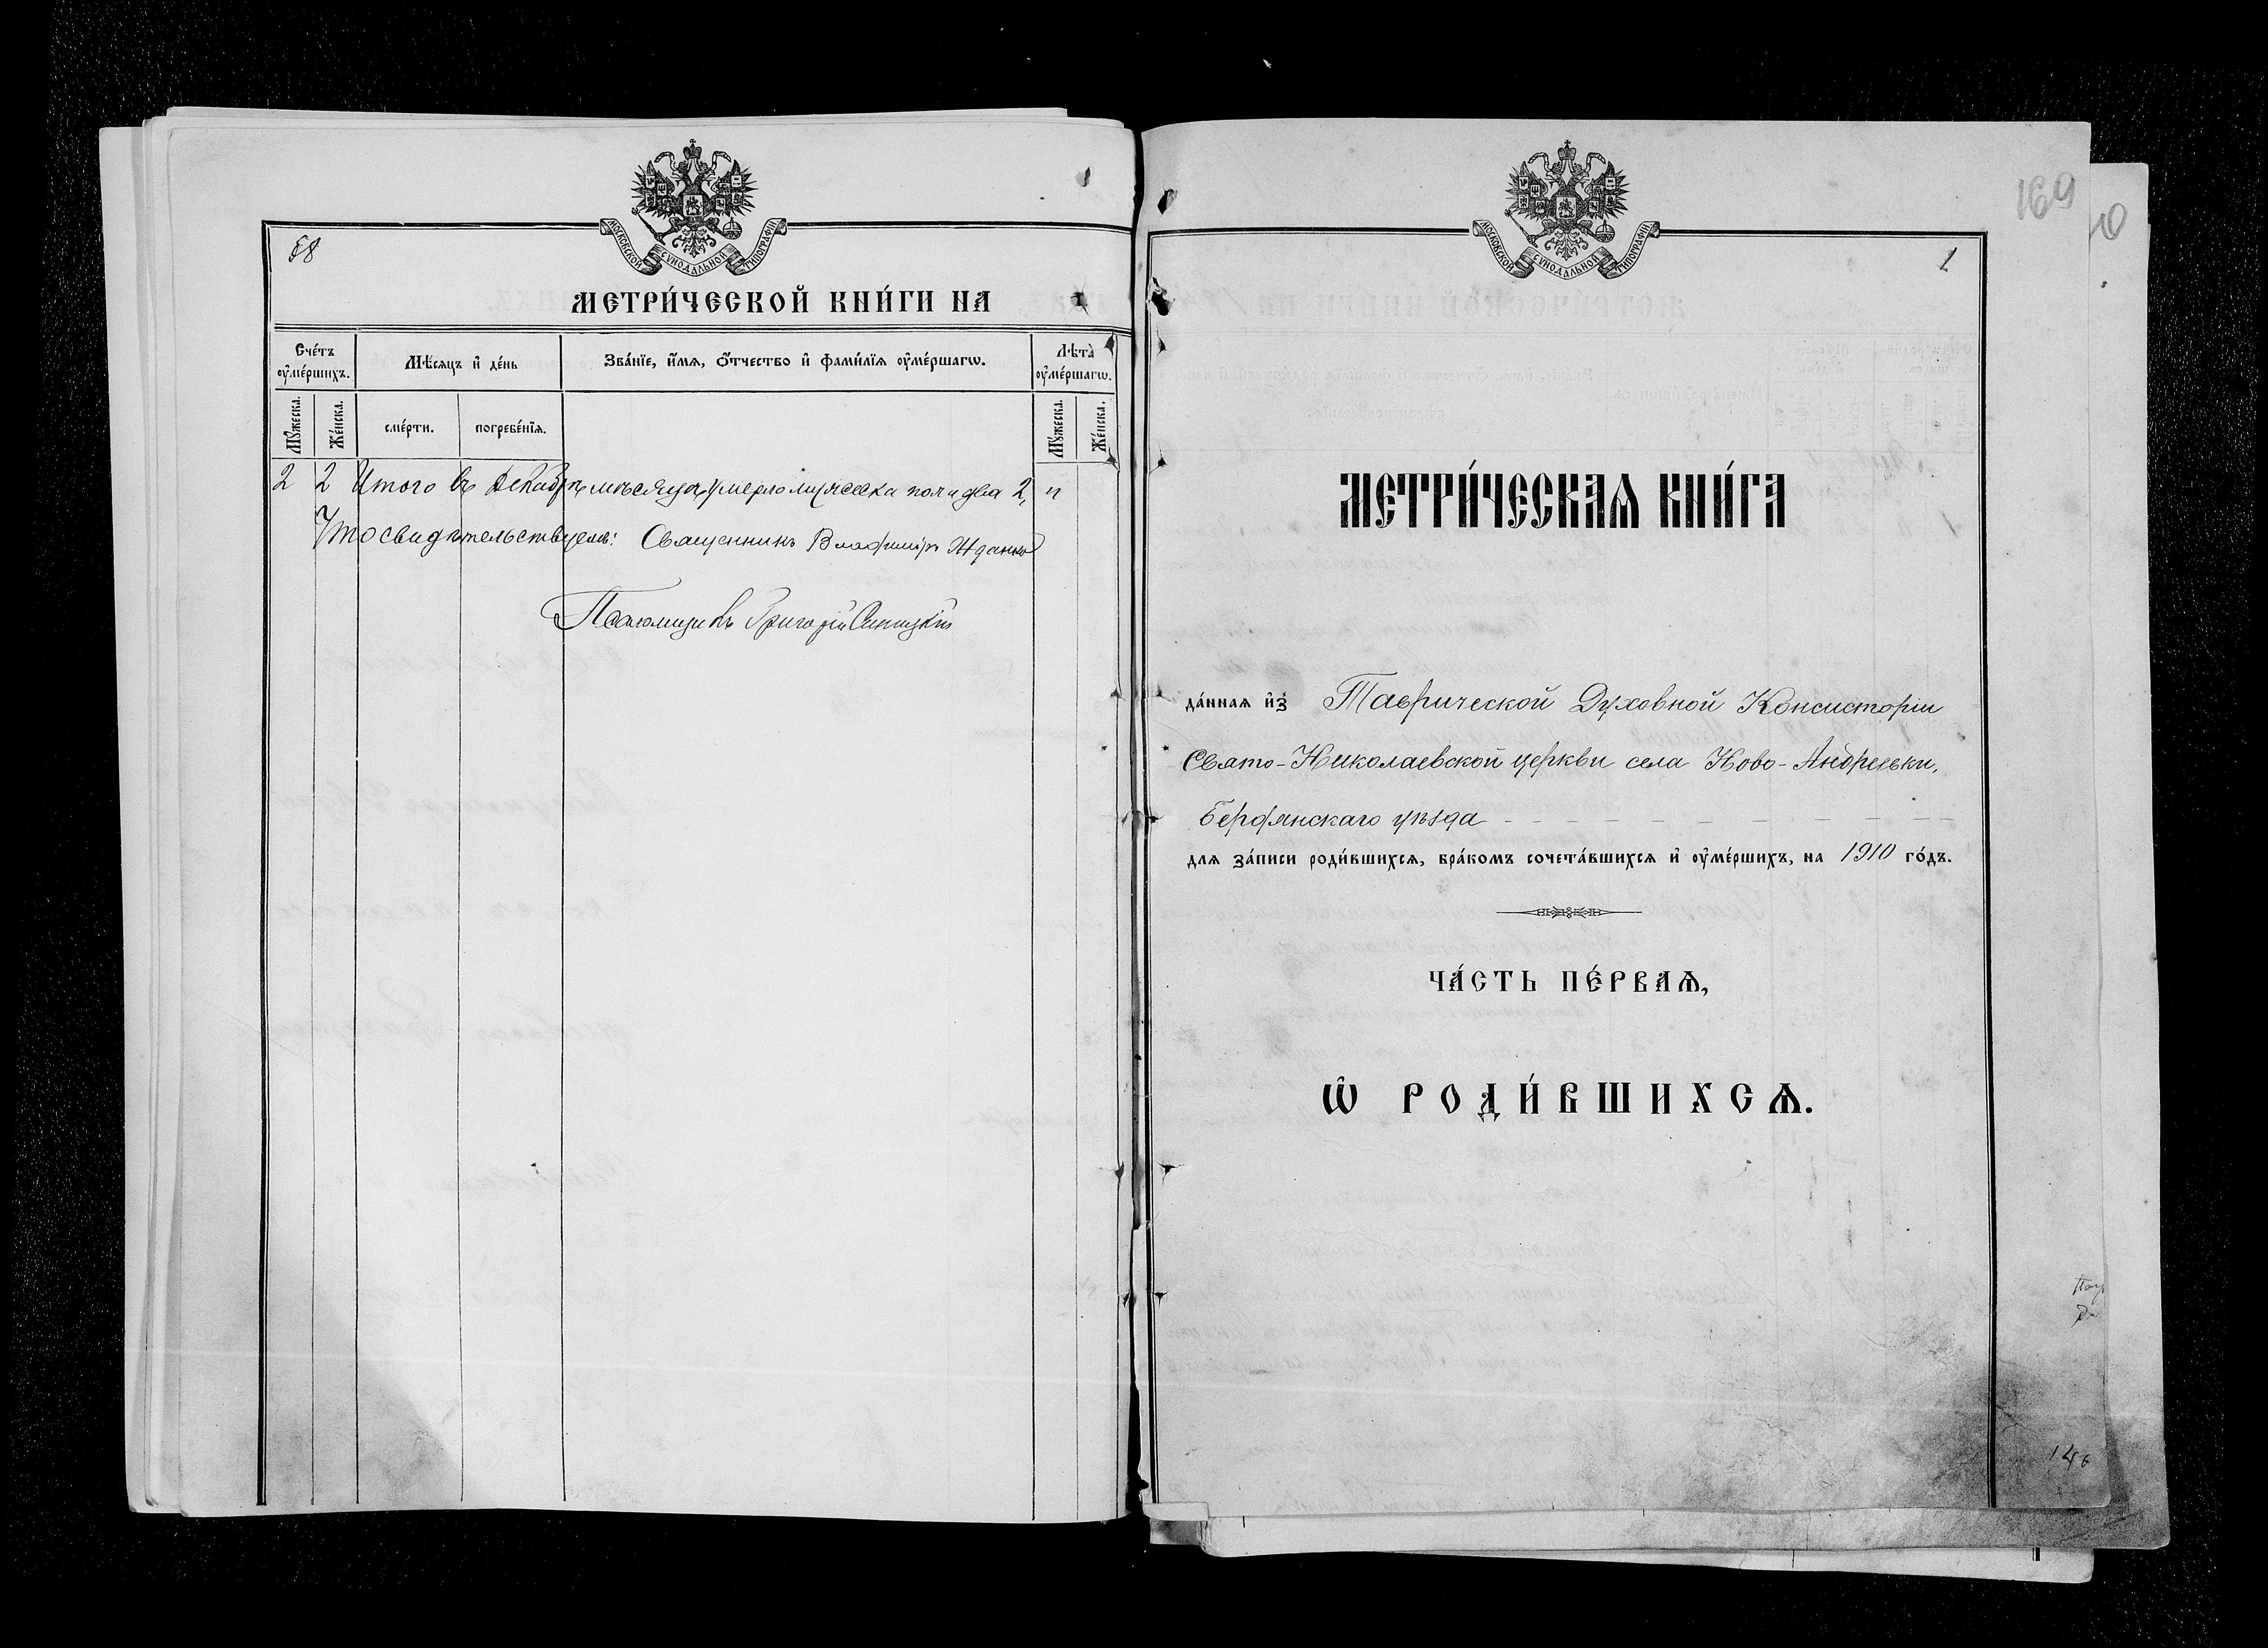 МОСКОВСКОЙ СѴНОДАЛЬНОЙ ТИПОГРАФІИ
58
МЕТРИ́ЧЕСКОЙ КНИ́ГИ НА
Сче́тъ оу҆ме́ршихъ.
Мѣ́сяцъ и҆ де́нь
Зва́нїе, и҆́мя, ѻ҆́тчество и҆ фами́лїя оу҆ме́ршагѡ.
Лѣта̀ оу҆ме́ршагѡ.
Мꙋ́жеска.
Же́нска.
сме́рти.
погребе́нїя.
Мꙋ́жеска.
Же́нска.
2 2 Итого въ Декабрѣ мѣсяцѣ умерло мужеска пола два 2, и
Что свидѣтельствуемъ: Священникъ Владиміръ Жданко
Псаломщикъ Григорій Синицкій
169
МОСКОВСКОЙ СѴНОДАЛЬНОЙ ТИПОГРАФІИ
1
МЕТРИ́ЧЕСКАѦ КНИ́ГА
да́нная и҆з̾ Таврической Духовной Консисторіи
Свято-Николаевской церкви села Ново-Андреевки,
Бердянскаго уѣзда
для за́писи роди́вшихся, бра́комъ сочета́вшихся и҆ оу҆ме́ршихъ, на 1910 го́дъ.
ЧА́СТЬ ПЕ́РВАѦ,
Ѡ҆ РОДИ́ВШИХСѦ.
146